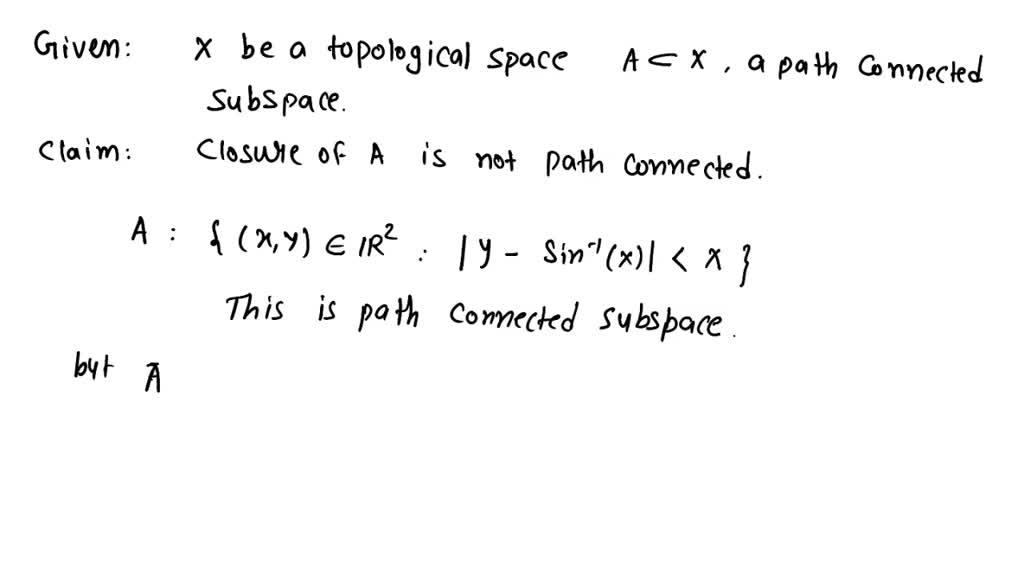 Given: X be a topological space A ⊂ X, a path connected
subspace.
Claim: Closure of A is not path connected.
A : { (x,y) ∈ ℝ² : |y - Sin⁻¹(x)| < x }
This is path connected subspace.
but Ā